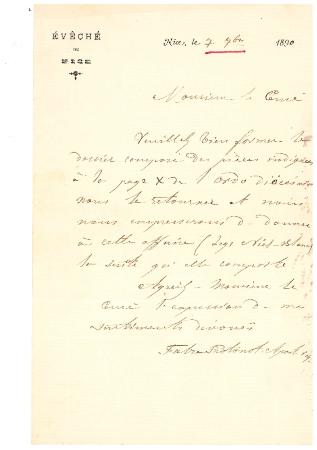 ÉVÊCHÉ
DE
NICE
Nice, le 7 9bre 1890
Monsieur le Curé
Veuillez bien former le
dossier composé des pièces indiquées
à la page X de l'ordo diocésain
nous le retourner et nous
nous empresserons de donner
à cette affaire (Legs
la suite qu'elle comporte
Agréez Monsieur le
Curé l'expression de mes
sentiments dévoués
Fabre